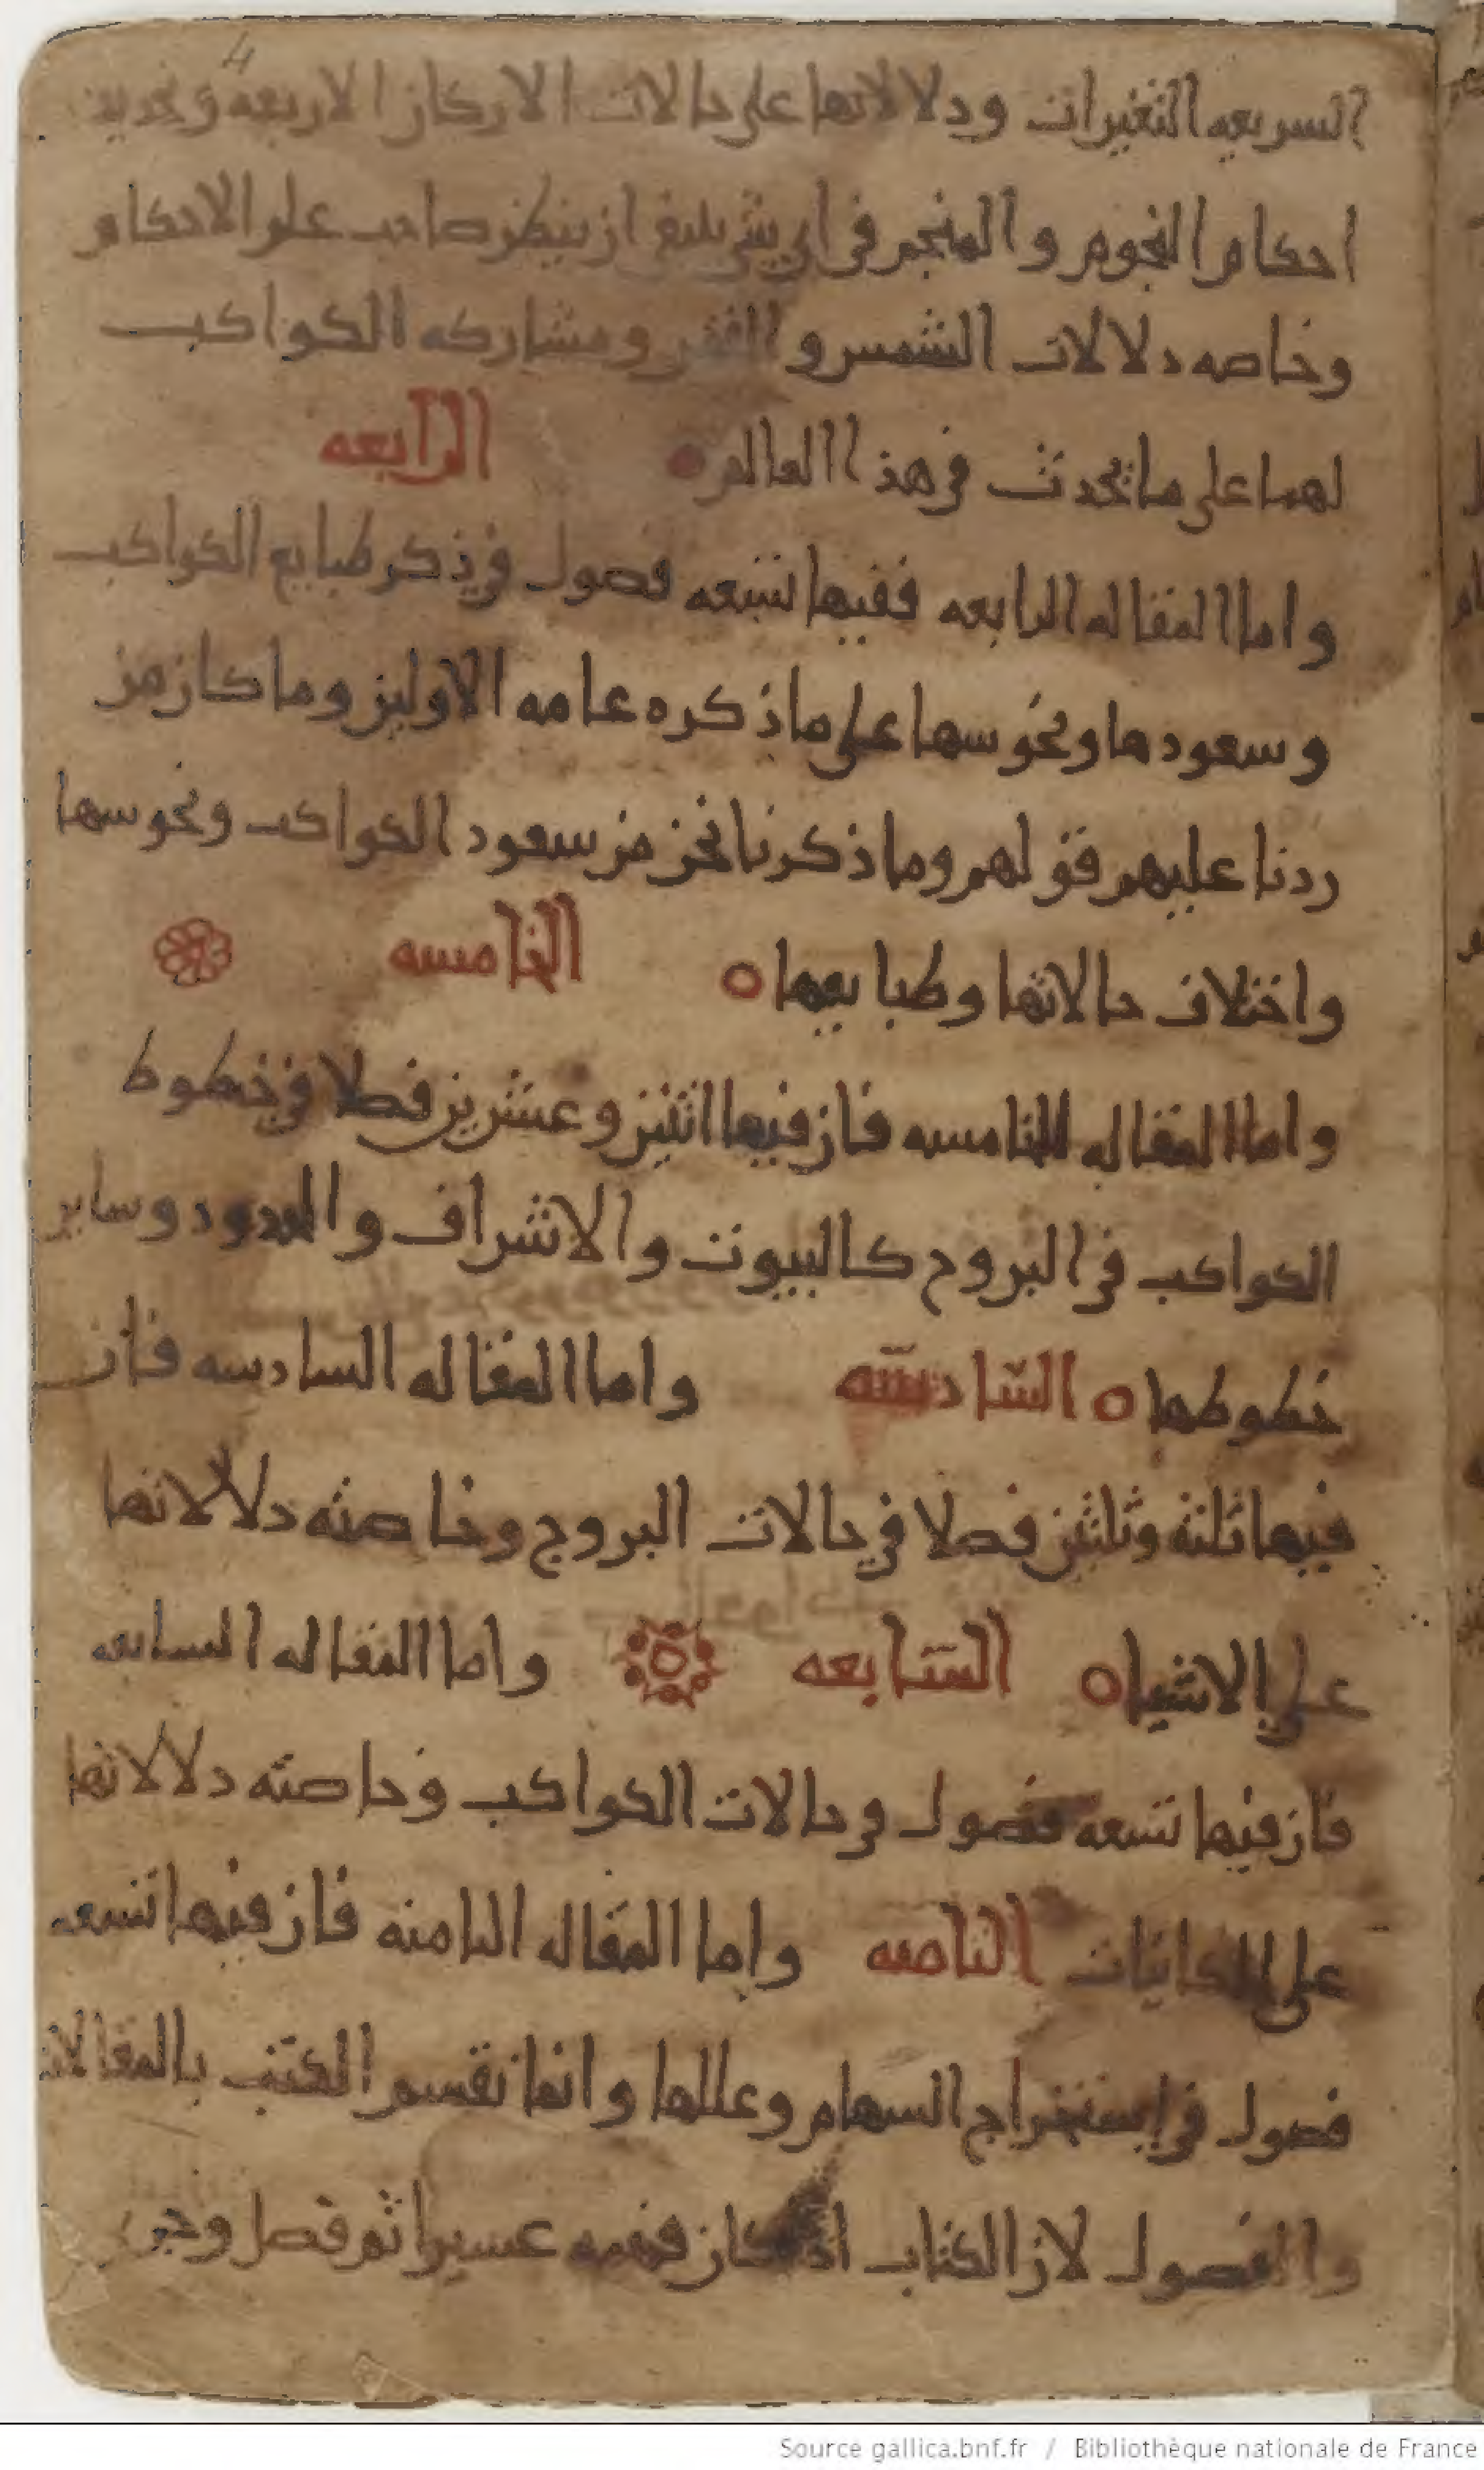 4
السريعه التغيرات ودلالاتها على حالات الاركان الاربعه وتحديد
احكام النجوم والمنجم في اي شي ينبغي ان ينظر صاحب علم الاحكام
وخاصه دلالات الشمس والقمر ومشاركه الكواكب
لهما على ما يحدث في هذا العالم الرابعه
واما المقاله الرابعه ففيها تسعه فصول في ذكر طبايع الكواكب
وسعودها ونحوسها على ما ذكره عامه الاولين وما كان من
ردنا عليهم قولهم وما ذكرنا نحن من سعود الكواكب ونحوسها
واختلاف حالاتها وطبايعها الخامسه
واما المقاله الخامسه فان فيها اثنين وعشرين فصلا في خطوط
الكواكب في البروج كالبيوت والاشراف والحدود وساير
خطوطها السادسه واما المقاله السادسه فان
فيها ثلثه وثلثين فصلا في حالات البروج وخاصته دلالاتها
على الاشيا السابعه واما المقاله السابعه
فان فيها تسعه فصول في حالات الكواكب وخاصته دلالاتها
على الكاينات الثامنه واما المقاله الثامنه فان فيها تسعه
فصول في استخراج السهام وعللها وانما نقسم الكتب بالمقالات
والفصول لان الكتاب اذا كان فهمه عسيرا ثم فصل وجزي
Source gallica.bnf.fr / Bibliothèque nationale de France